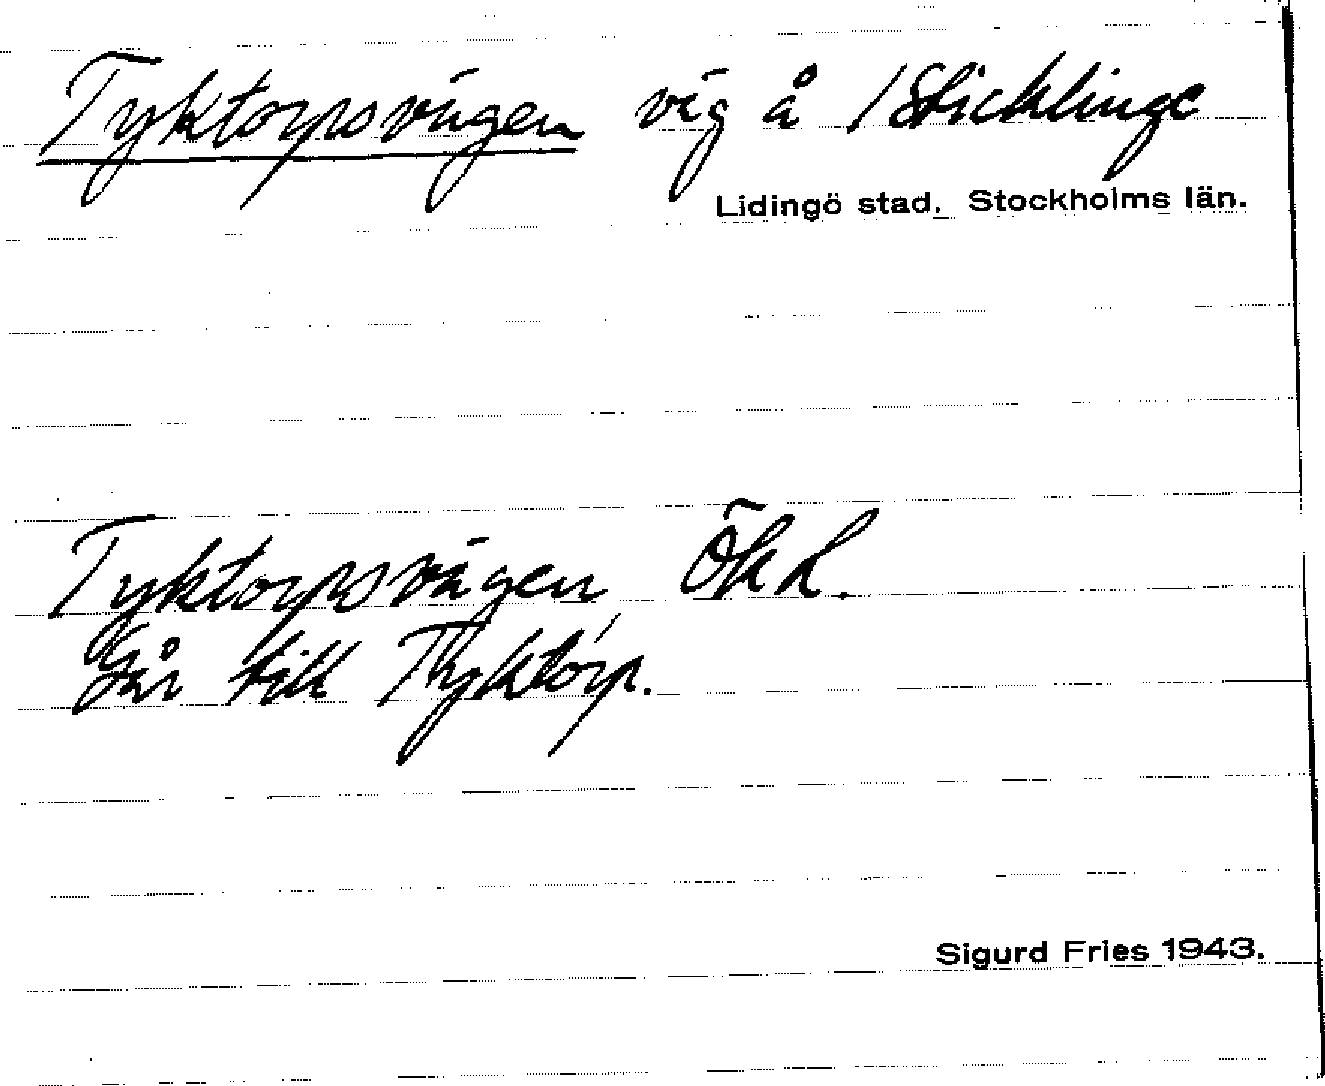 Tyktorpsvägen väg å 1 Sticklinge
Lidingö stad. Stockholms län.
Tyktorpsvägen ÖkL.
Går till Tyktorp.
Sigurd Fries 1943.